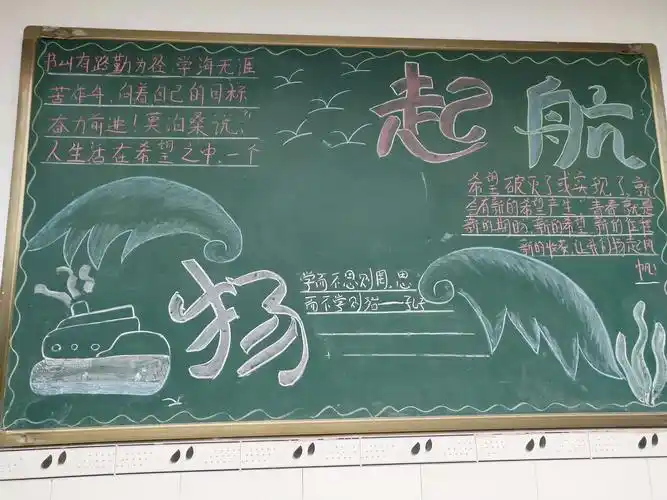 书山有路勤为径 学海无涯
苦作舟，向着自己的目标
奋力前进！莫泊桑说："
人生活在希望之中，一个
起航
希望破灭了或实现了，就
会有新的希望产生"青春就是
新的期盼，新的希望，新的
新的收获，让我们扬起风
帆！
扬
学而不思则罔，思
而不学则殆——孔子